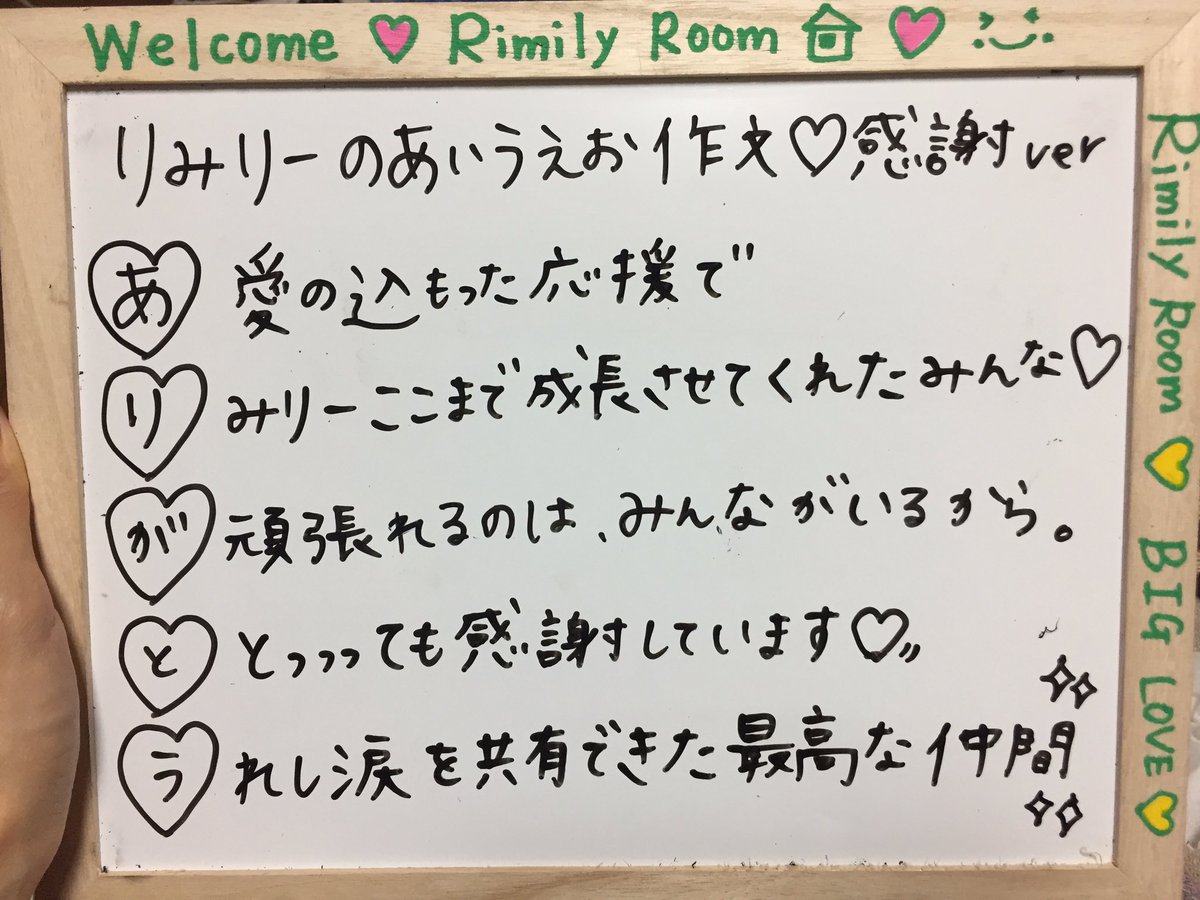 Welcome ♡ Rimily Room ♡
りみりーのあいうえお作文♡感謝ver
あ 愛の込もった応援で
り みりーここまで成長させてくれたみんな♡
が 頑張れるのは、みんながいるから。
と とっっっても感謝しています♡
う れし涙を共有できた最高な仲間
Rimily Room ♡ BIG LOVE ♡